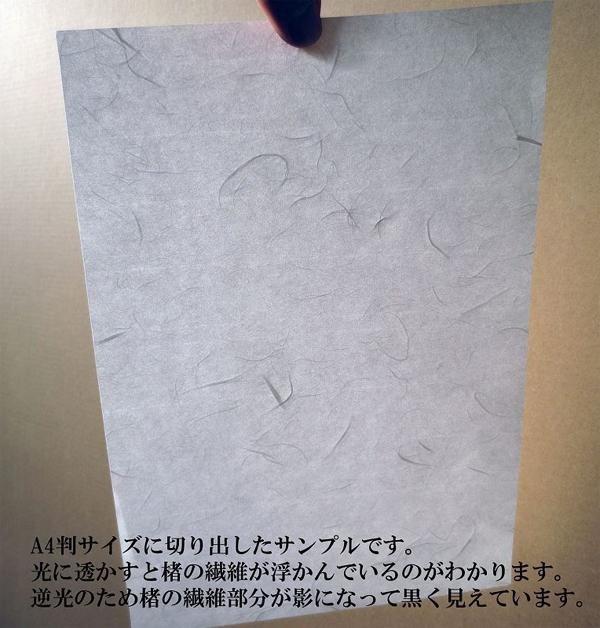 A4判サイズに切り出したサンプルです。
光に透かすと楮の繊維が浮かんでいるのがわかります。
逆光のため楮の繊維部分が影になって黒く見えています。